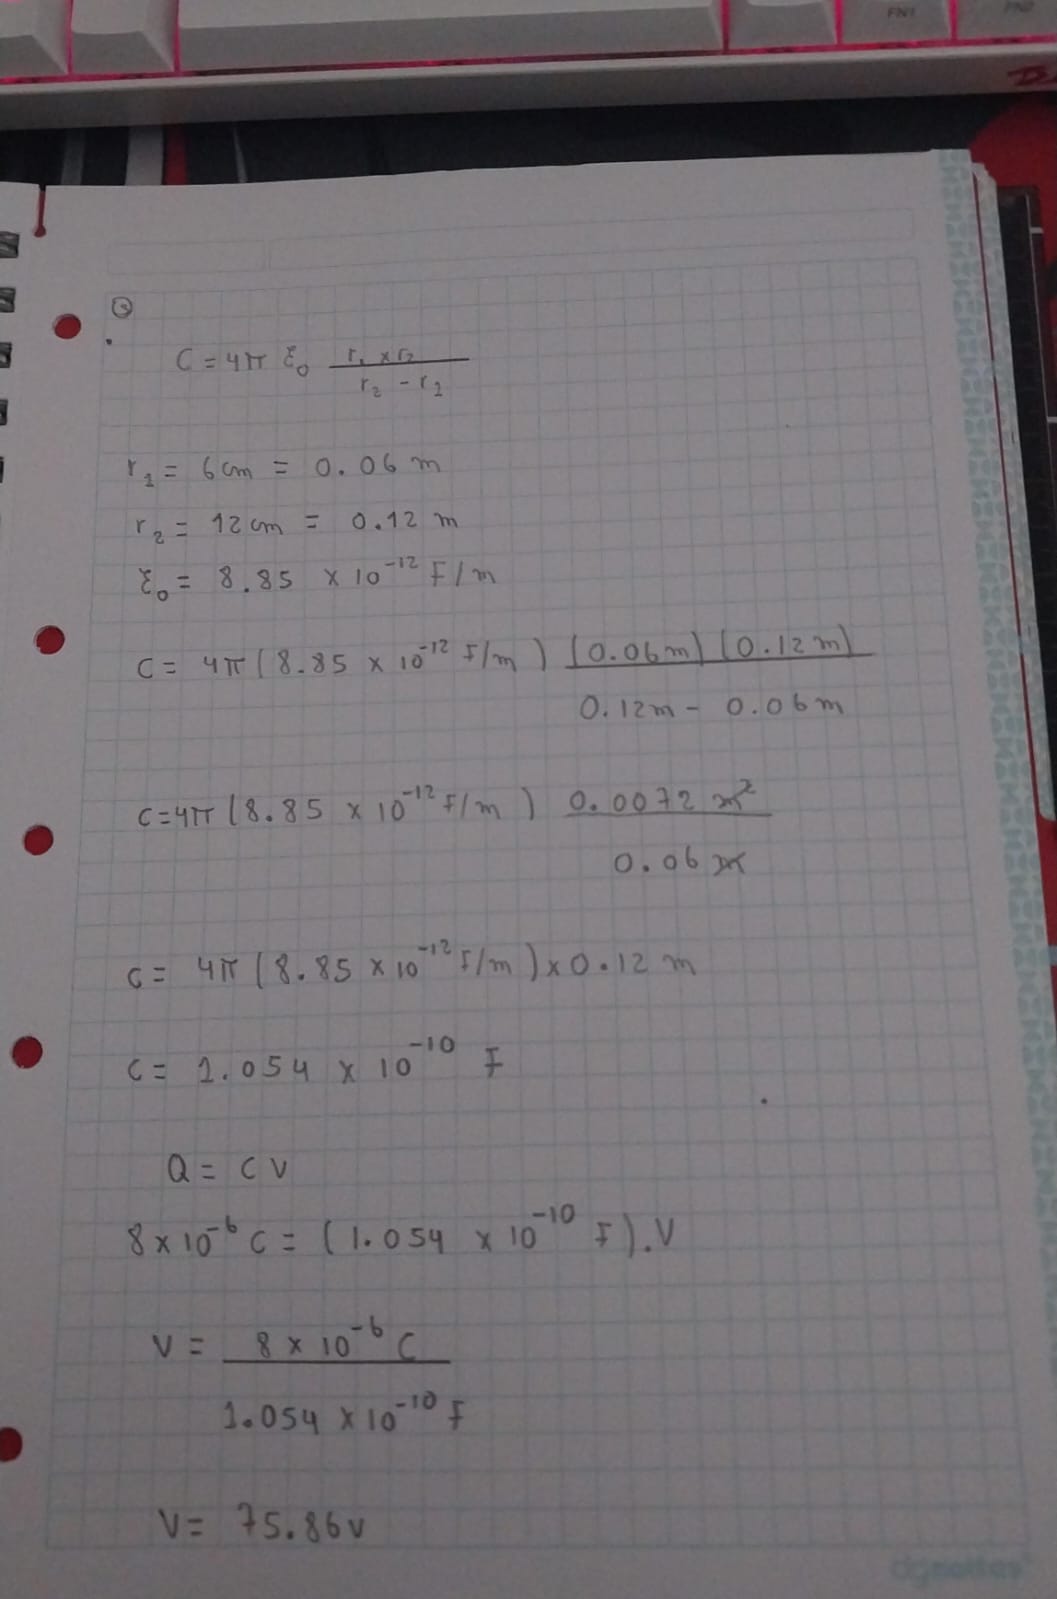 FN1 FN2
③
C = 4π ε₀ r₁ x r₂ / r₂ - r₁
r₁ = 6cm = 0.06 m
r₂ = 12cm = 0.12 m
ε₀ = 8.85 x 10⁻¹² F/m
C = 4π (8.85 x 10⁻¹² F/m) (0.06m) (0.12m) / 0.12m - 0.06m
C=4π (8.85 x 10⁻¹² F/m) 0.0072 m² / 0.06 m
C = 4π (8.85 x 10⁻¹² F/m) x 0.12 m
C = 1.054 x 10⁻¹⁰ F
Q = C V
8 x 10⁻⁶ C = (1.054 x 10⁻¹⁰ F).V
V = 8 x 10⁻⁶ C / 1.054 x 10⁻¹⁰ F
V = 75.86v